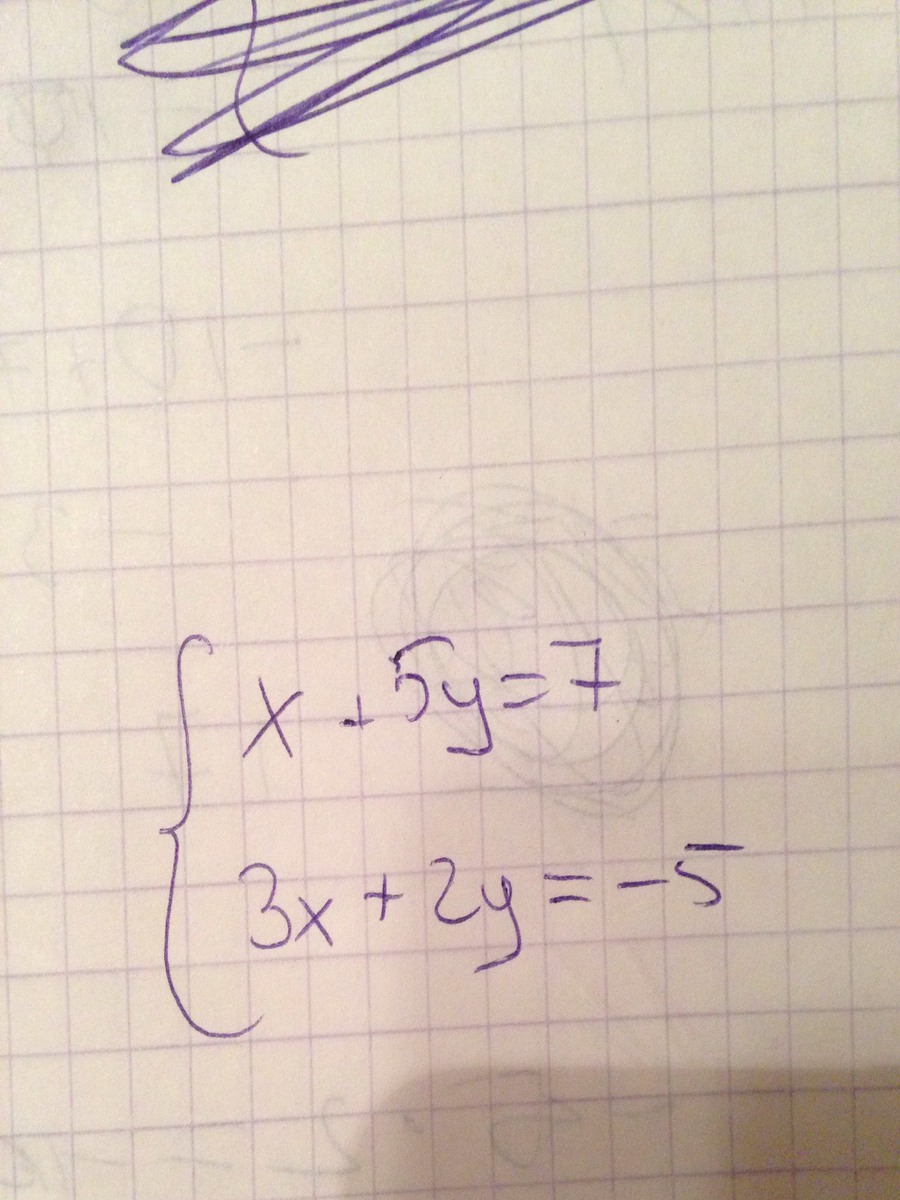 x + 5y = 7
3x + 2y = -5